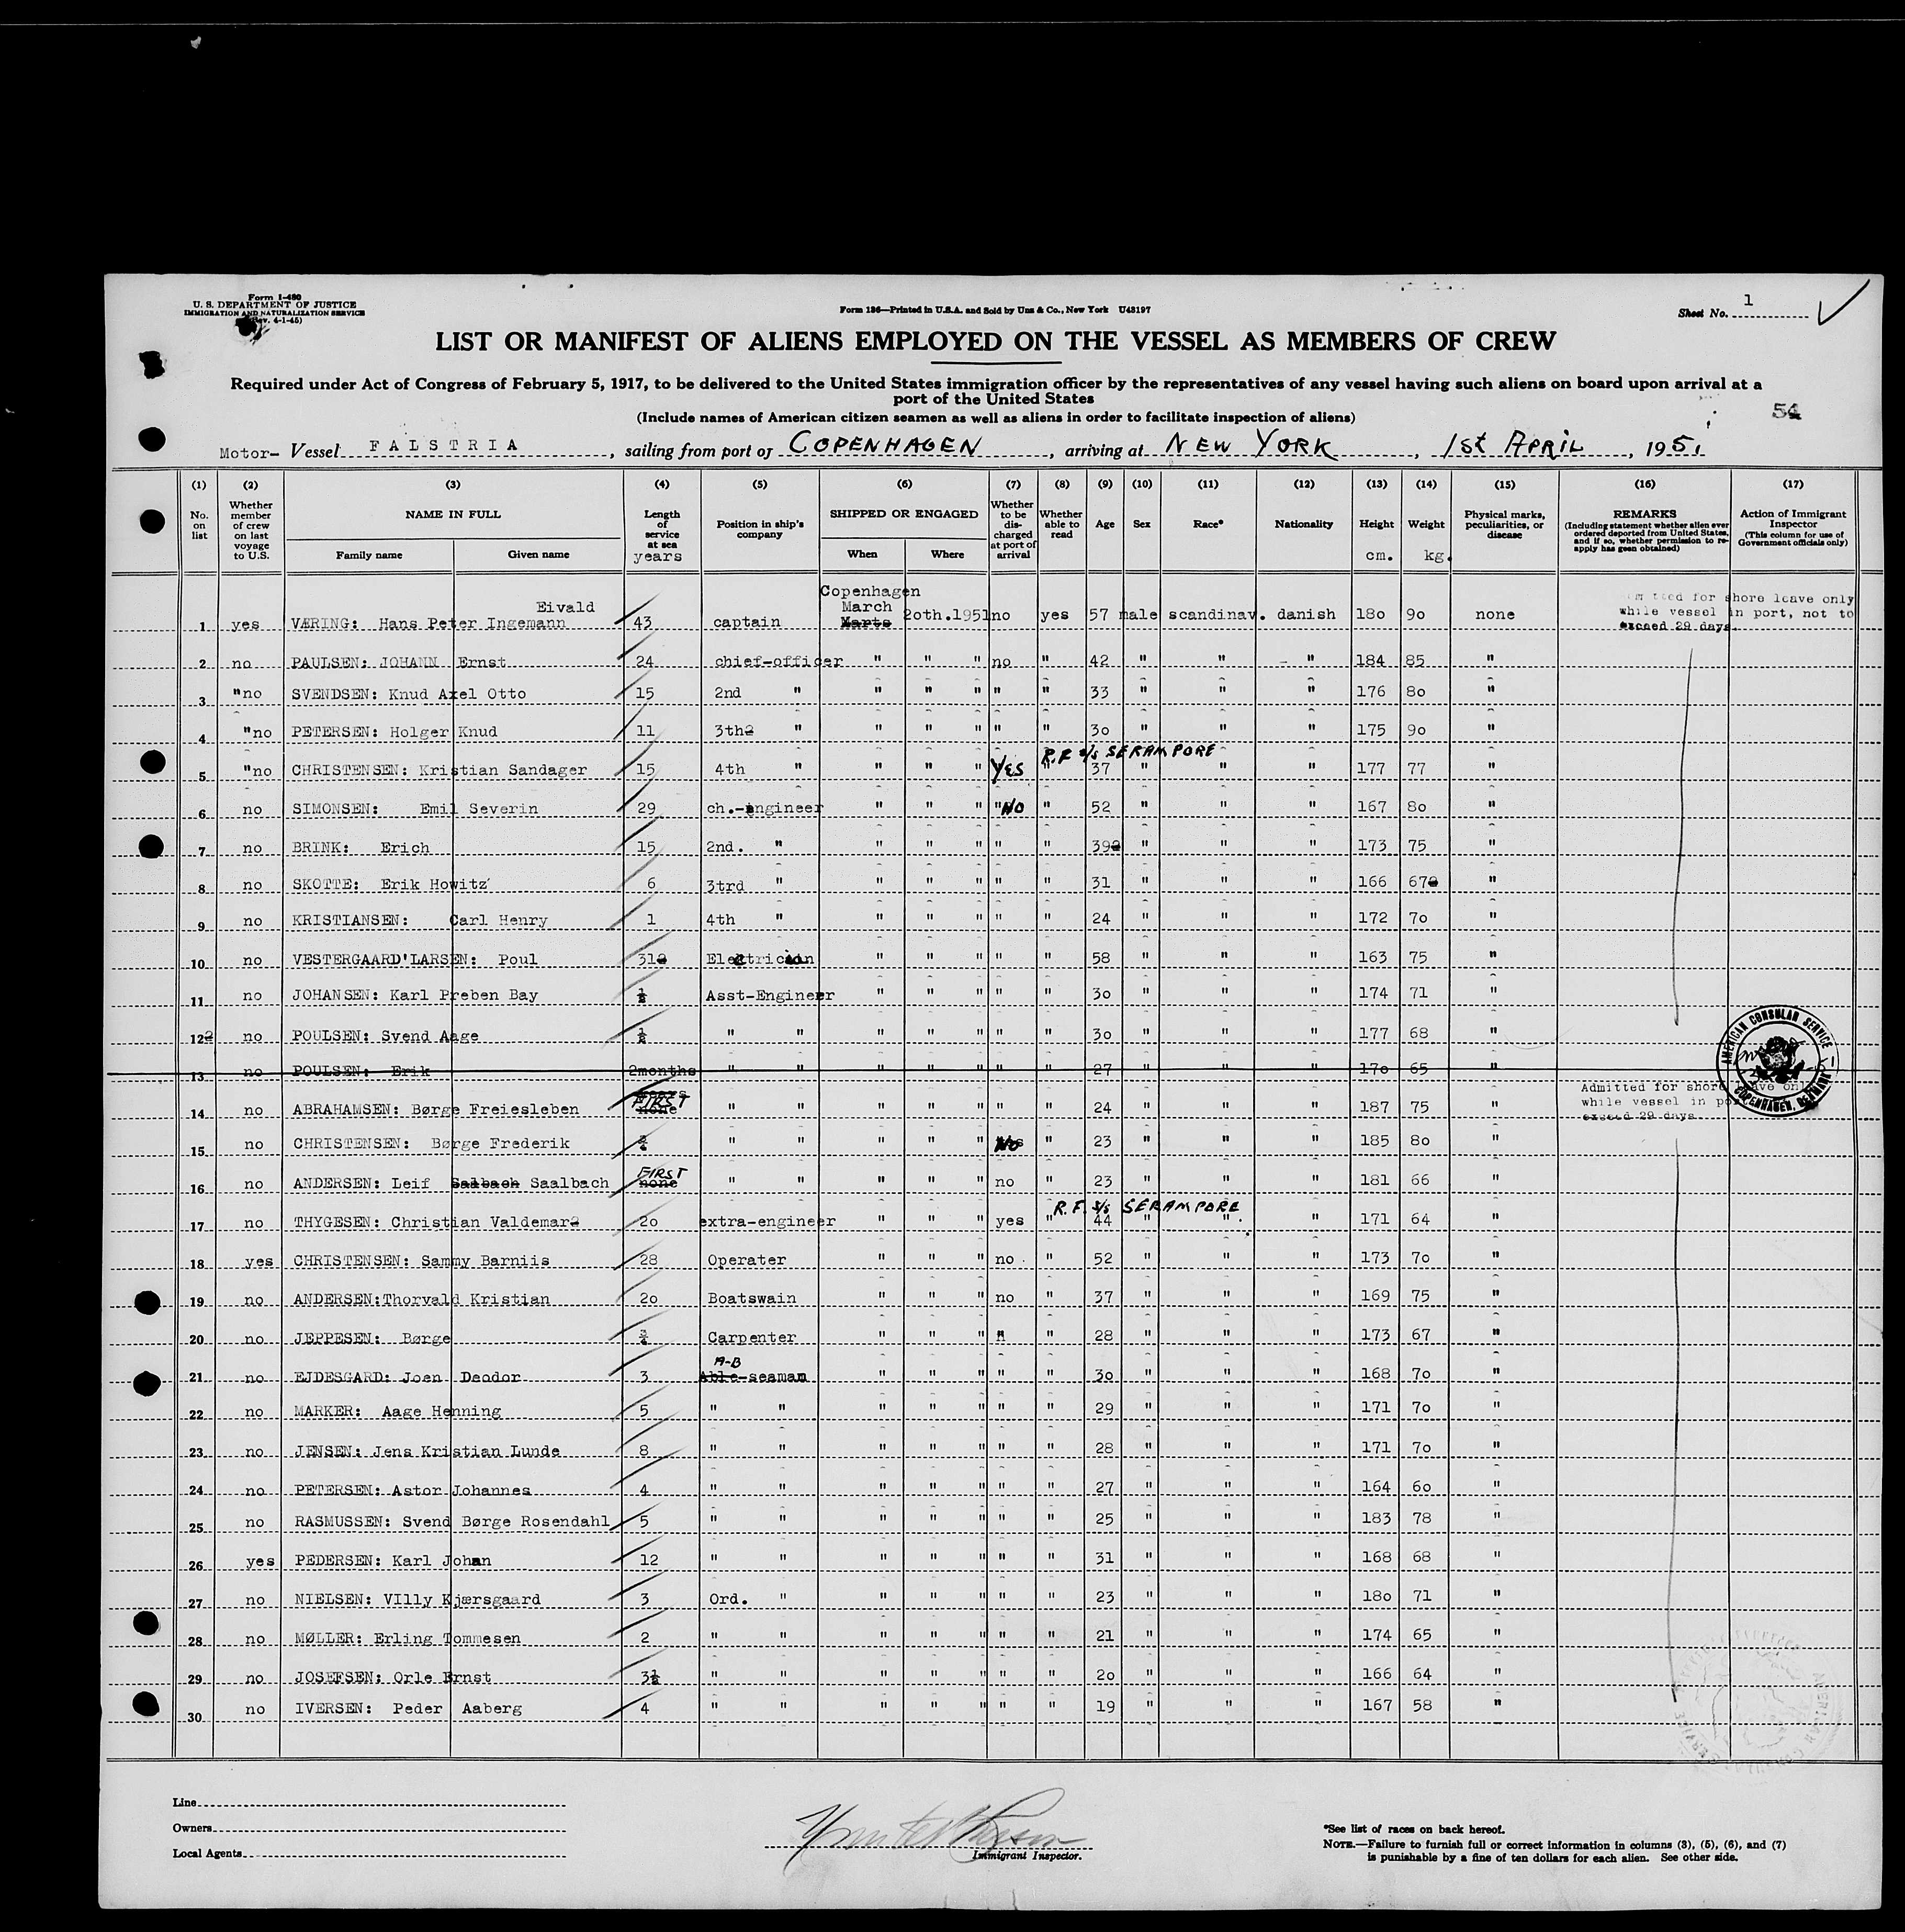 Form I-480
U. S. DEPARTMENT OF JUSTICE
IMMIGRATION AND NATURALIZATION SERVICE
(Rev. 4-1-45)
Form 186—Printed in U.S.A. and Sold by Unz & Co., New York U48197
Sheet No. 1
LIST OR MANIFEST OF ALIENS EMPLOYED ON THE VESSEL AS MEMBERS OF CREW
Required under Act of Congress of February 5, 1917, to be delivered to the United States immigration officer by the representatives of any vessel having such aliens on board upon arrival at a
port of the United States
(Include names of American citizen seamen as well as aliens in order to facilitate inspection of aliens)
Motor- Vessel FALSTRIA, sailing from port of COPENHAGEN, arriving at NEW YORK, 1st APRIL, 1951
(1) (2) (3) (4) (5) (6) (7) (8) (9) (10) (11) (12) (13) (14) (15) (16) (17)
No. on list
Whether member of crew on last voyage to U.S.
NAME IN FULL
Family name Given name
Length of service at sea years
Position in ship's company
SHIPPED OR ENGAGED
When Where
Whether to be discharged at port of arrival
Whether able to read
Age
Sex
Race*
Nationality
Height cm.
Weight kg.
Physical marks, peculiarities, or disease
REMARKS
(Including statement whether alien ever ordered deported from United States, and if so, whether permission to re-apply has geen obtained)
Action of Immigrant Inspector
(This column for use of Government officials only)
1 yes VÆRING: Hans Peter Ingemann Eivald 43 captain Copenhagen March Marts 2oth.1951 no yes 57 male scandinav. danish 18o 9o none
tted for shore leave only
while vessel in port, not to
exceed 29 days.
2 no PAULSEN: JOHANN Ernst 24 chief-officer " " " no " 42 " " " 184 85 "
3 "no SVENDSEN: Knud Axel Otto 15 2nd " " " " " " 33 " " " 176 8o "
4 "no PETERSEN: Holger Knud 11 3th " " " " " " 3o " " " 175 9o "
R.F. s/s SERAMPORE
5 "no CHRISTENSEN: Kristian Sandager 15 4th " " " " YES " 37 " " " 177 77 "
6 no SIMONSEN: Emil Severin 29 ch.-engineer " " " "NO " 52 " " " 167 8o "
7 no BRINK: Erich 15 2nd. " " " " " " 39 " " " 173 75 "
8 no SKOTTE: Erik Howitz 6 3trd " " " " " " 31 " " " 166 67 "
9 no KRISTIANSEN: Carl Henry 1 4th " " " " " " 24 " " " 172 7o "
10 no VESTERGAARD'LARSEN: Poul 31 Electrician " " " " " 58 " " " 163 75 "
11 no JOHANSEN: Karl Preben Bay ½ Asst-Engineer " " " " " 3o " " " 174 71 "
12 no POULSEN: Svend Aage ½ " " " " " " " 3o " " " 177 68 "
13 no POULSEN: Erik 2months " " " " " " " 27 " " " 17o 65 "
AMERICAN CONSULAR SERVICE
COPENHAGEN, DENMARK
Admitted for shore leave only
while vessel in port
exceed 29 days
14 no ABRAHAMSEN: Børge Freiesleben FIRST none " " " " " " " 24 " " " 187 75 "
15 no CHRISTENSEN: Børge Frederik " " " " " NO " 23 " " " 185 8o "
16 no ANDERSEN: Leif Saalbach Saalbach FIRST none " " " " " no " 23 " " " 181 66 "
R.F. s/s SERAMPORE
17 no THYGESEN: Christian Valdemar 2o extra-engineer " " " yes " 44 " " " 171 64 "
18 yes CHRISTENSEN: Sammy Barniis 28 Operater " " " no " 52 " " " 173 7o "
19 no ANDERSEN:Thorvald Kristian 2o Boatswain " " " no " 37 " " " 169 75 "
20 no JEPPESEN: Børge Carpenter " " " " " 28 " " " 173 67 "
21 no EJDESGARD: Joen Deodor 3 A-B Able-seaman " " " " " 3o " " " 168 7o "
22 no MARKER: Aage Henning 5 " " " " " " " 29 " " " 171 7o "
23 no JENSEN: Jens Kristian Lunde 8 " " " " " " " 28 " " " 171 7o "
24 no PETERSEN: Astor Johannes 4 " " " " " " " 27 " " " 164 6o "
25 no RASMUSSEN: Svend Børge Rosendahl 5 " " " " " " " 25 " " " 183 78 "
26 yes PEDERSEN: Karl Johan 12 " " " " " " " 31 " " " 168 68 "
27 no NIELSEN: VIlly Kjærsgaard 3 Ord. " " " " " " 23 " " " 18o 71 "
28 no MØLLER: Erling Tommesen 2 " " " " " " " 21 " " " 174 65 "
29 no JOSEFSEN: Orle Ernst 3½ " " " " " " " 2o " " " 166 64 "
30 no IVERSEN: Peder Aaberg 4 " " " " " " " 19 " " " 167 58 "
Line
Owners
Local Agents
Immigrant Inspector.
*See list of races on back hereof.
NOTE.—Failure to furnish full or correct information in columns (3), (5), (6), and (7)
is punishable by a fine of ten dollars for each alien. See other side.